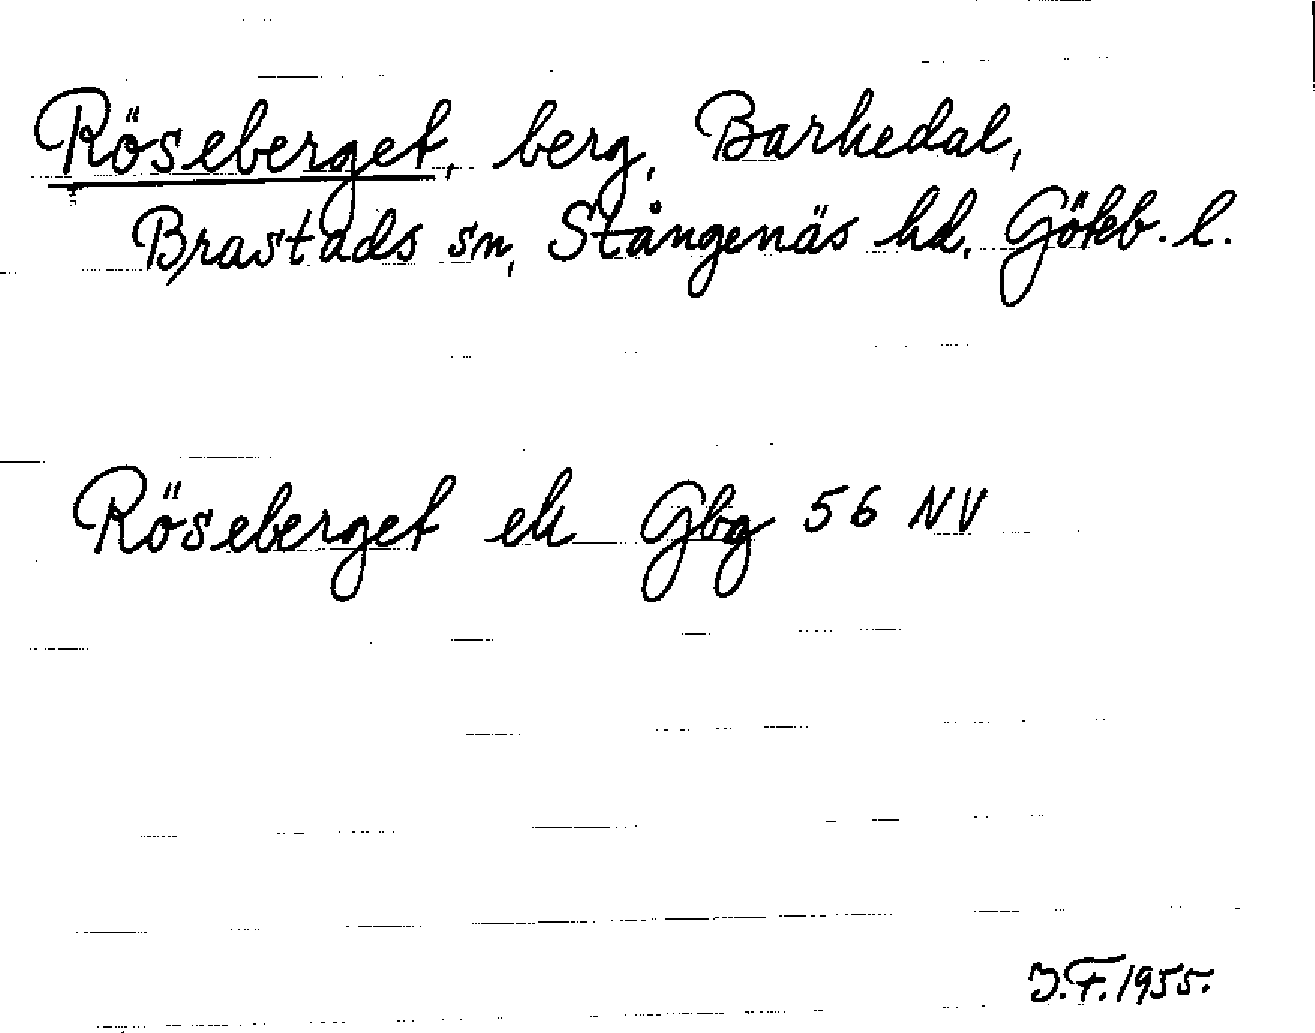 Röseberget, berg, Barkedal,
Brastads sn, Stångenäs hd. Göteb. l.
Röseberget ek Gbg 56 NV
J.F. 1955.